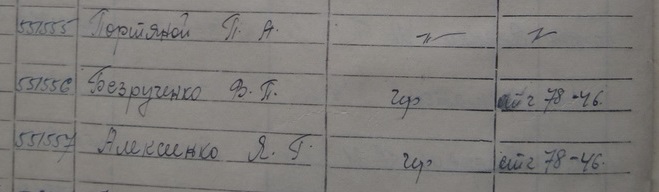 551555 Портяной П. А. -"- -"-
551556 Безрученко Ф. П. гр атг 78-46.
551557 Алексиенко Я. Г. гр атг 78-46.